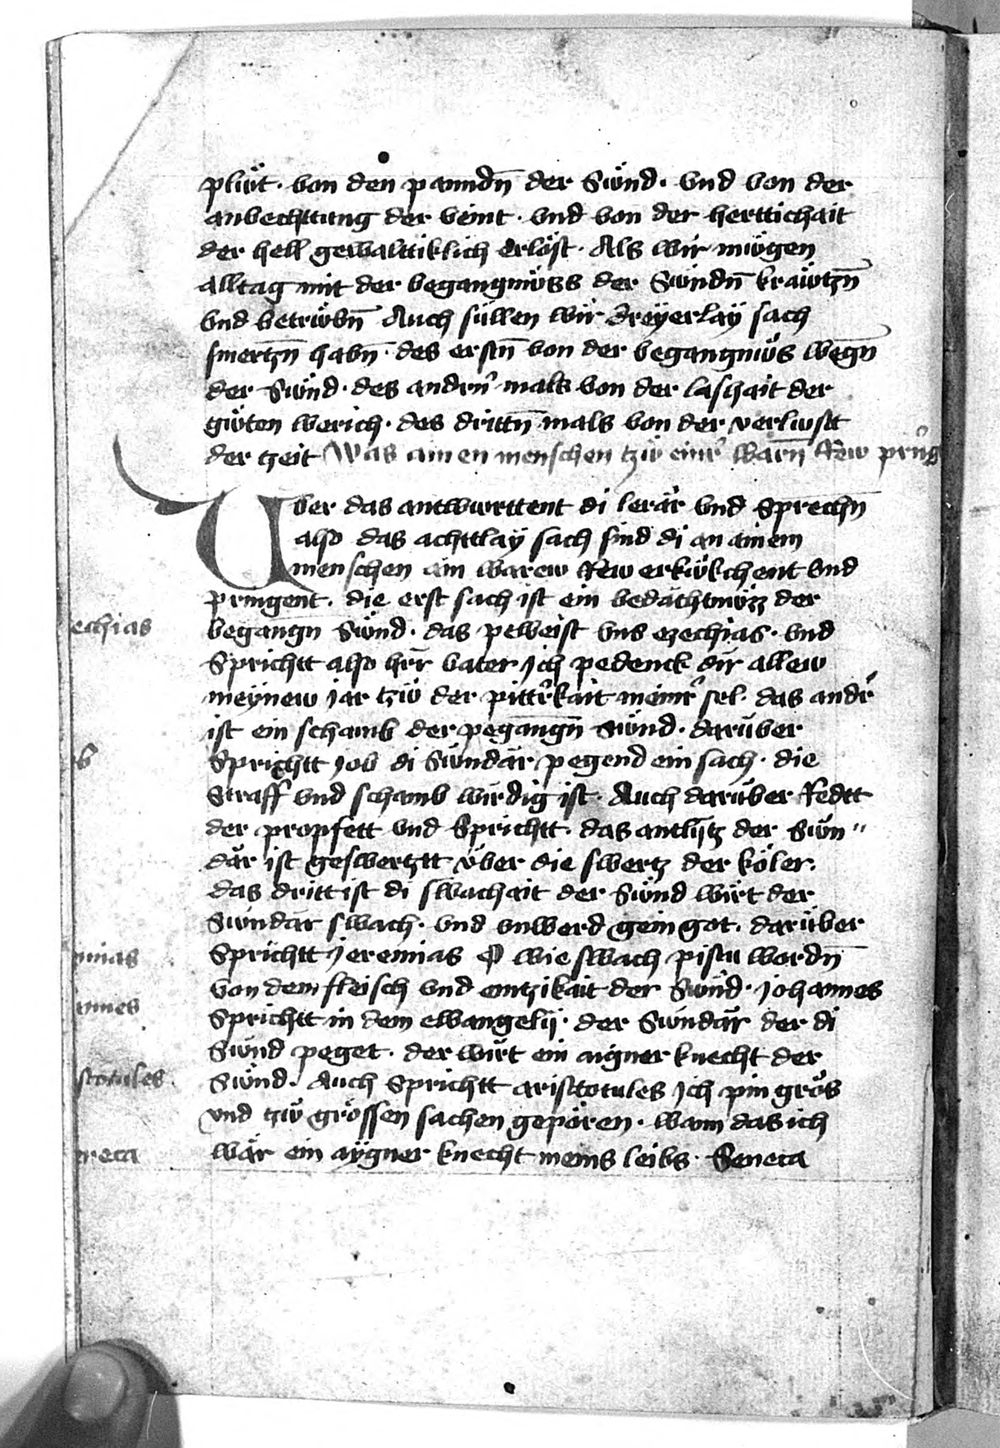 plüt · von den panndn̄ der Sünd · vnd von der
anvechttung der veint · vnd von der herttichait
der hell gewalttiklich erlöst · Als wir mügen
alltag mit der begangnüss der Sündn̄ kraẅtzn̄
vnd betrübn̄ Auch süllen wir dreÿerlaÿ sach
smertzn̄ habn̄ · des erstn̄ von der begangnüs wegn̄
der Sünd · des andrn̄ mals von der lashait der
güten werich · des drittn̄ mals von der verlust
der tzeit Was ainen menschen tzü einer warn̄ Rew pring
Vber das antwurttent di lerär vnd Sprechn̄
also das achttlaÿ sach sind di an ainem
menschen ain warew Rew erkükchent vnd
pringent · die erst sach ist ein bedachtnüzz der
begangn̄ Sünd · das peweist vns ezechias · vnd
Sprichtt also herr vater Jch pedenck dir allew
meÿnew jar tzü der pitterkait meiner sel · das ander
ist ein schamb der pegangn̄ Sünd · darüber
Sprichtt Job di Sündär pegend ein sach · die
Straff vnd schamb wirdig ist · Auch darüber Redtt
der propfett vnd Sprichtt · das antlitz der Sün〃
där ist geswertztt über die swertz der köler ·
das dritt ist di swachait der Sünd wirt der
Sündär swach · vnd vnwerd gein got · darüber
Sprichtt Jeremias O wie swach pistu wordn̄
von dem fleisch vnd emtzikait der Sünd · Johannes
Sprichtt in dem ewangelij · der Sündär der di
Sünd peget · der wirt ein aigner knecht der
Sünd · Auch Sprichtt aristtotules Jch pin grös
vnd tzü grössen sachen gepören · wann das ich
wär ein aÿgner knecht meins leibs · Seneca
echias
b
mias
nnes
stotules
neca